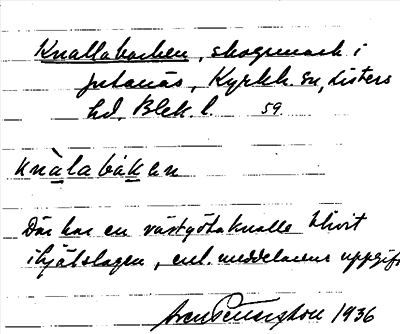 Knallabacken, skogsmark i
Jutanäs, Kyrkh. sn, Listers
hd, Blek. l. 59.
knàlabákan
Där har en västgötaknalle blivit
ihjälslagen, enl. meddelarens uppgift
Sven Bengtsson 1936